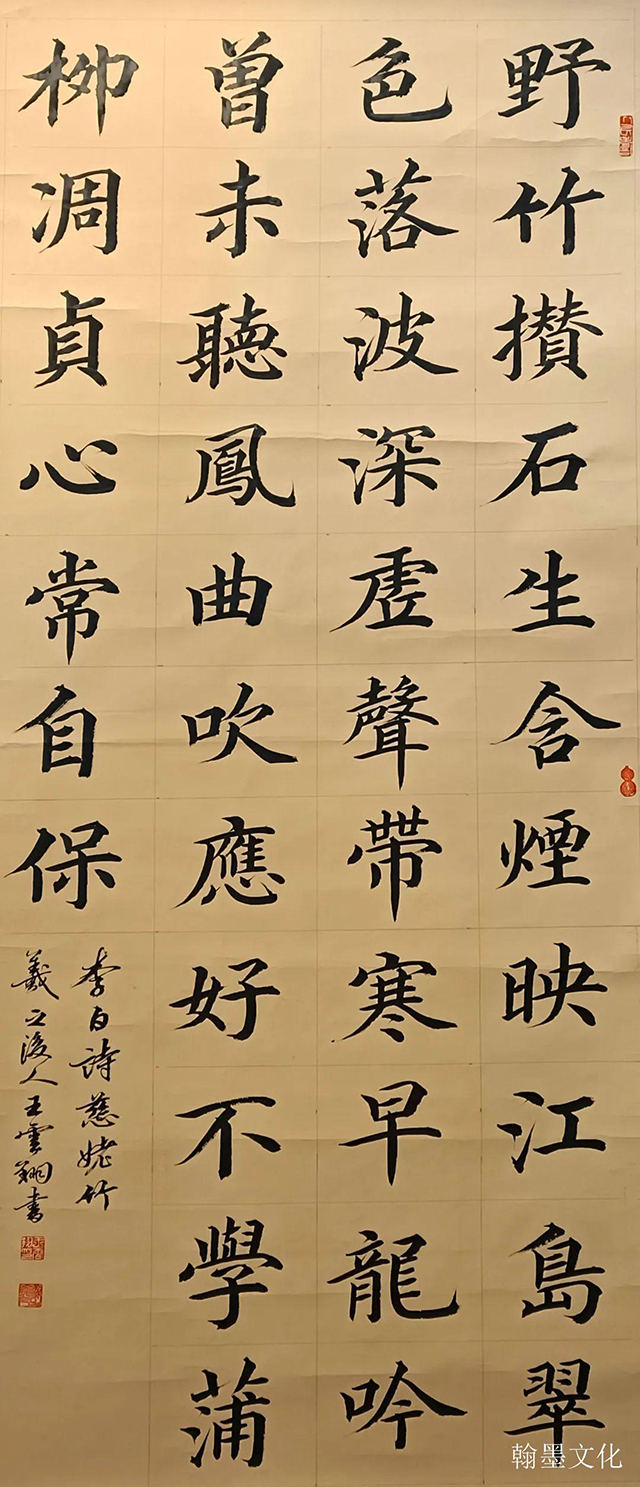 野竹攅石生含煙映江島翠
色落波深虛聲帶寒早龍吟
曾未聽鳳曲吹應好不學蒲
柳凋貞心常自保
李白詩慈姥竹
羲之後人王雲翔書
翰墨文化